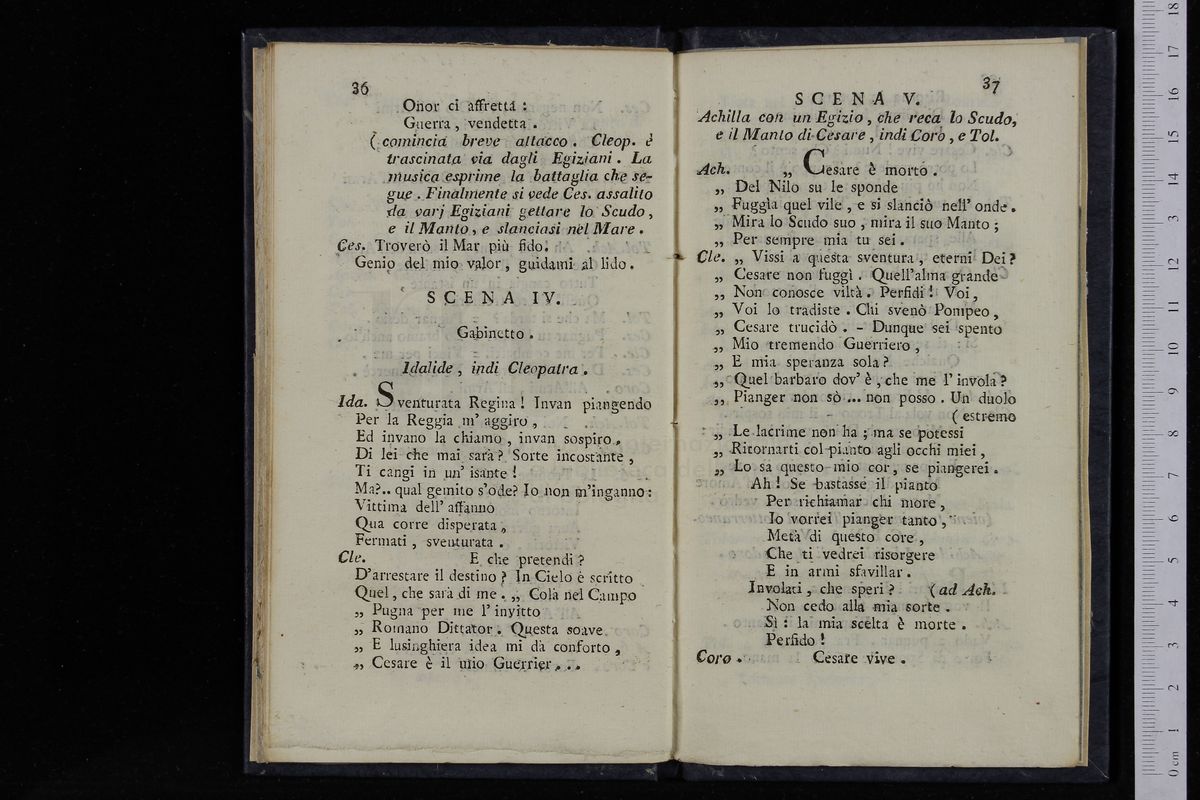 36
Onor ci affretta :
Guerra , vendetta .
( comincia breve attacco . Cleop. è
trascinata via dagli Egiziani . La
musica esprime la battaglia che se-
gue . Finalmente si vede Ces. assalito
da varj Egiziani gettare lo Scudo ,
e il Manto , e slanciasi nel Mare .
Ces. Troverò il Mar più fido.
Genio del mio valor , guidami al lido .
SCENA IV.
Gabinetto .
Idalide , indi Cleopatra .
Ida. Sventurata Regina ! Invan piangendo
Per la Reggia m' aggiro ,
Ed invano la chiamo , invan sospiro .
Di lei che mai sarà ? Sorte incostante ,
Ti cangi in un' isante !
Ma?.. qual gemito s'ode? Io non m'inganno :
Vittima dell' affanno
Qua corre disperata ,
Fermati , sventurata .
Cle. E che pretendi ?
D'arrestare il destino ? In Cielo è scritto
Quel , che sarà di me . ,, Colà nel Campo
,, Pugna per me l' invitto
,, Romano Dittator . Questa soave
,, E lusinghiera idea mi dà conforto ,
,, Cesare è il mio Guerrier . . .
37
SCENA V.
Achilla con un Egizio , che reca lo Scudo,
e il Manto di Cesare , indi Coro , e Tol.
Ach. ,, Cesare è morto .
,, Del Nilo su le sponde
,, Fuggìa quel vile , e si slanciò nell' onde .
,, Mira lo Scudo suo , mira il suo Manto ;
,, Per sempre mia tu sei .
Cle. ,, Vissi a questa sventura , eterni Dei ?
,, Cesare non fuggì . Quell'alma grande
,, Non conosce viltà . Perfidi ! Voi ,
,, Voi lo tradiste . Chi svenò Pompeo ,
,, Cesare trucidò . - Dunque sei spento
,, Mio tremendo Guerriero ,
,, E mia speranza sola ?
,, Quel barbaro dov' è , che me l' invola ?
,, Pianger non sò ... non posso . Un duolo
( estremo
,, Le lacrime non ha ; ma se potessi
,, Ritornarti col pianto agli occhi miei ,
,, Lo sa questo mio cor , se piangerei .
Ah ! Se bastasse il pianto
Per richiamar chi more ,
Io vorrei pianger tanto ,
Metà di questo core ,
Che ti vedrei risorgere
E in armi sfavillar .
Involati , che speri ? ( ad Ach.
Non cedo alla mia sorte .
Sì : la mia scelta è morte .
Perfido !
Coro . Cesare vive .